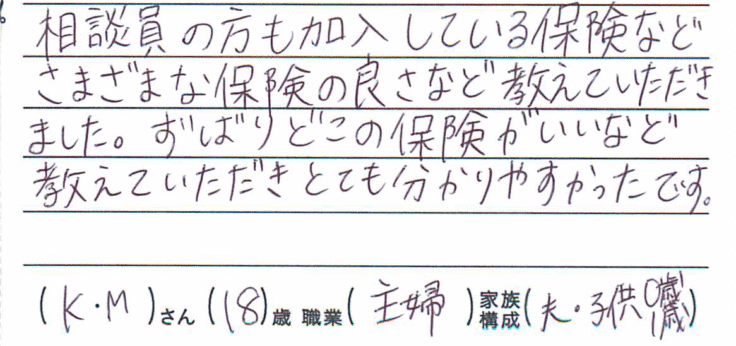 相談員の方も加入している保険など
さまざまな保険の良さなど教えていただき
ました。ずばりどこの保険がいいなど
教えていただきとても分かりやすかったです。
(K・M)さん (18)歳 職業(主婦)家族構成(夫・子供0歳1歳)